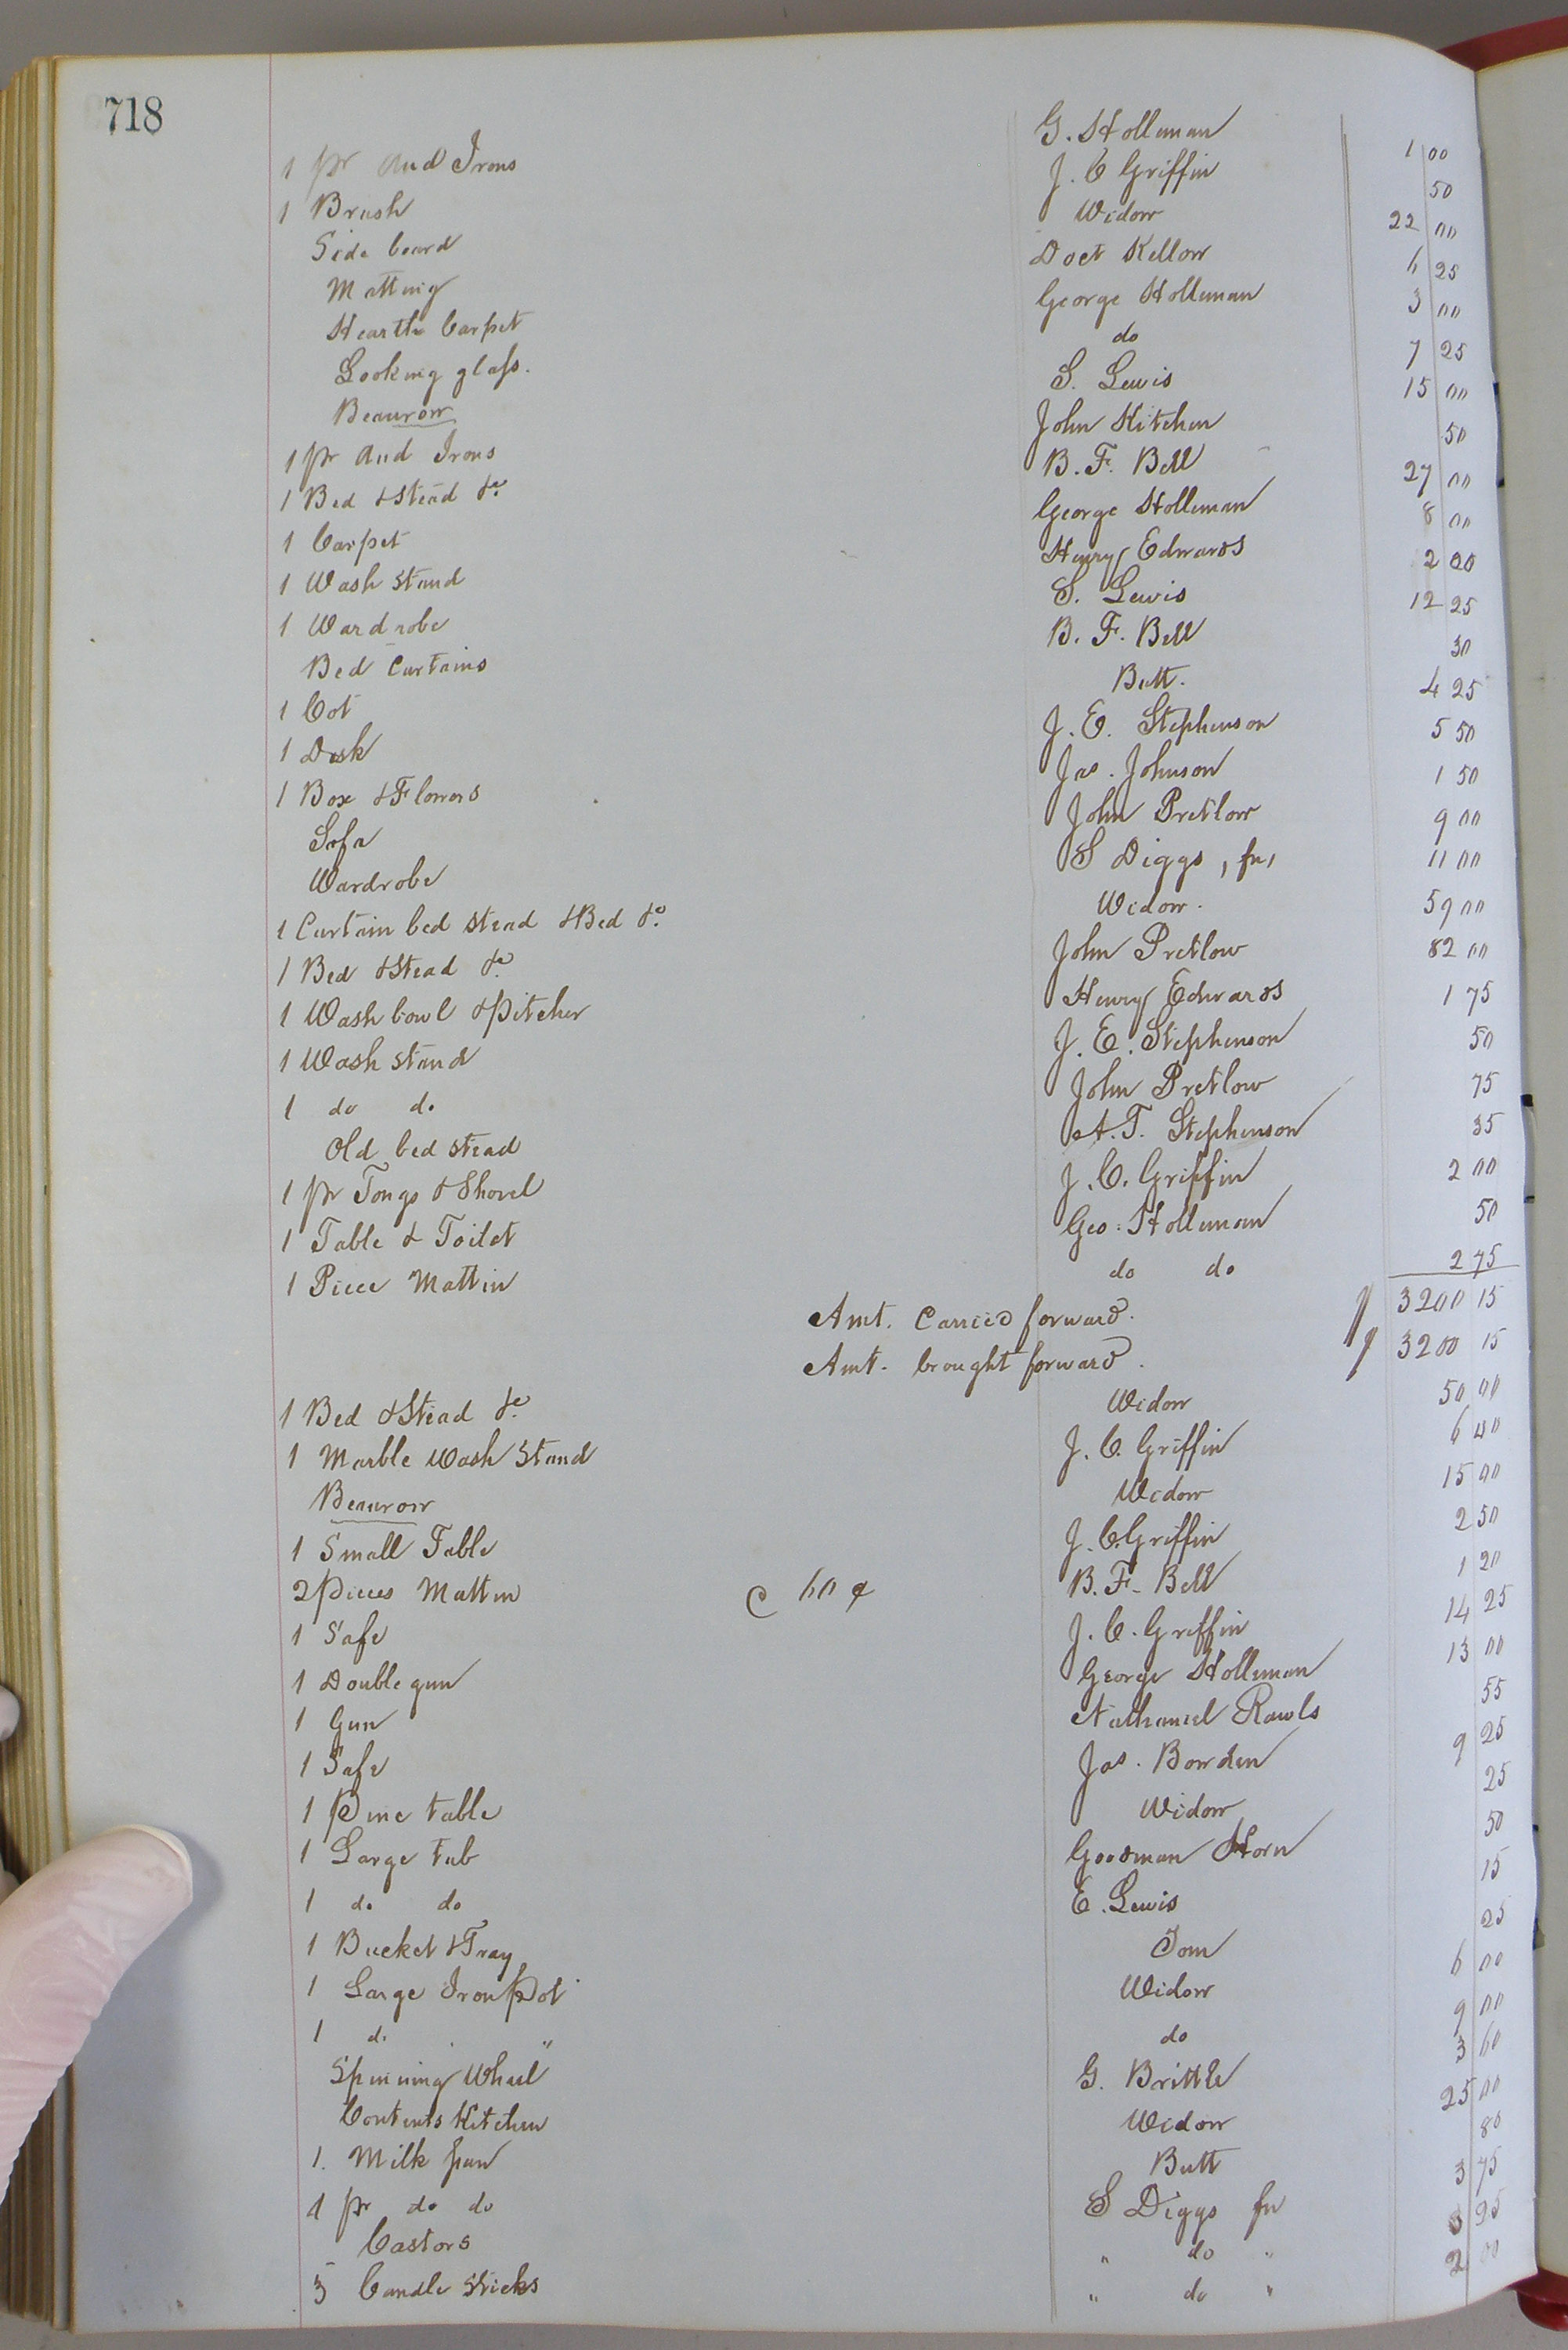 718
1 pr And Irons G. Holleman 1 00
1 Brush J. C Griffin 50
Side board Widow 22 00
Matting Doct Kellow 6 25
Hearth Carpet George Holleman 3 00
Looking glass. do 7 25
Beaurow S. Lewis 15 00
1 pr And Irons John Kitchen 50
1 Bed & Stead &c. B. F. Bell 27 00
1 Carpet George Holleman 8 00
1 Wash Stand Henry Edwards 2 00
1 Wardrobe S. Lewis 12 25
Bed Curtains B. F. Bell 30
1 Cot Butt. 4 25
1 Desk J. E. Stephenson 5 50
1 Box & Flowers Jas. Johnson 1 50
Sofa John Pretlow 9 00
Wardrobe S Diggs, fn, 11 00
1 Curtain bed stead & Bed &c. Widow. 59 00
1 Bed & Stead &c. John Pretlow 82 00
1 Wash bowl & pitcher Henry Edwards 1 75
1 Wash stand J. E. Stephenson 50
1 do do John Pretlow 75
Old bed stead A. T. Stephenson 35
1 pr Tongs & Shovel J. C. Griffin 2 00
1 Table & Toilet Geo. Holleman 50
1 Piece Mattin do do 2 75
Amt. Carried forward. $ 3200 15
Amt. brought forward. $ 3200 15
1 Bed & Stead &c. Widow 50 00
1 Marble Wash Stand J. C. Griffin 6 00
Beaurow Widow 15 00
1 Small Table J. C. Griffin 2 50
2 pieces Mattin C 60 ¢ B. F. Bell 1 20
1 Safe J. C. Griffin 14 25
1 Double gun George Holleman 13 00
1 Gun Nathaniel Rawls 55
1 Safe Jas. Bowden 9 25
1 Pine table Widow 25
1 Large tub Goodman Horn 50
1 do do E. Lewis 15
1 Bucket & Tray Tom 25
1 Large Iron Pot Widow 6 00
1 do " do 9 00
Spinning Wheel G. Brittle 3 60
Contents Kitchen Widow 25 00
1. Milk pan Butt 80
1 pr do do S Diggs fn 3 75
Castors " do " 95
3 Candle Sticks " do " 2 00